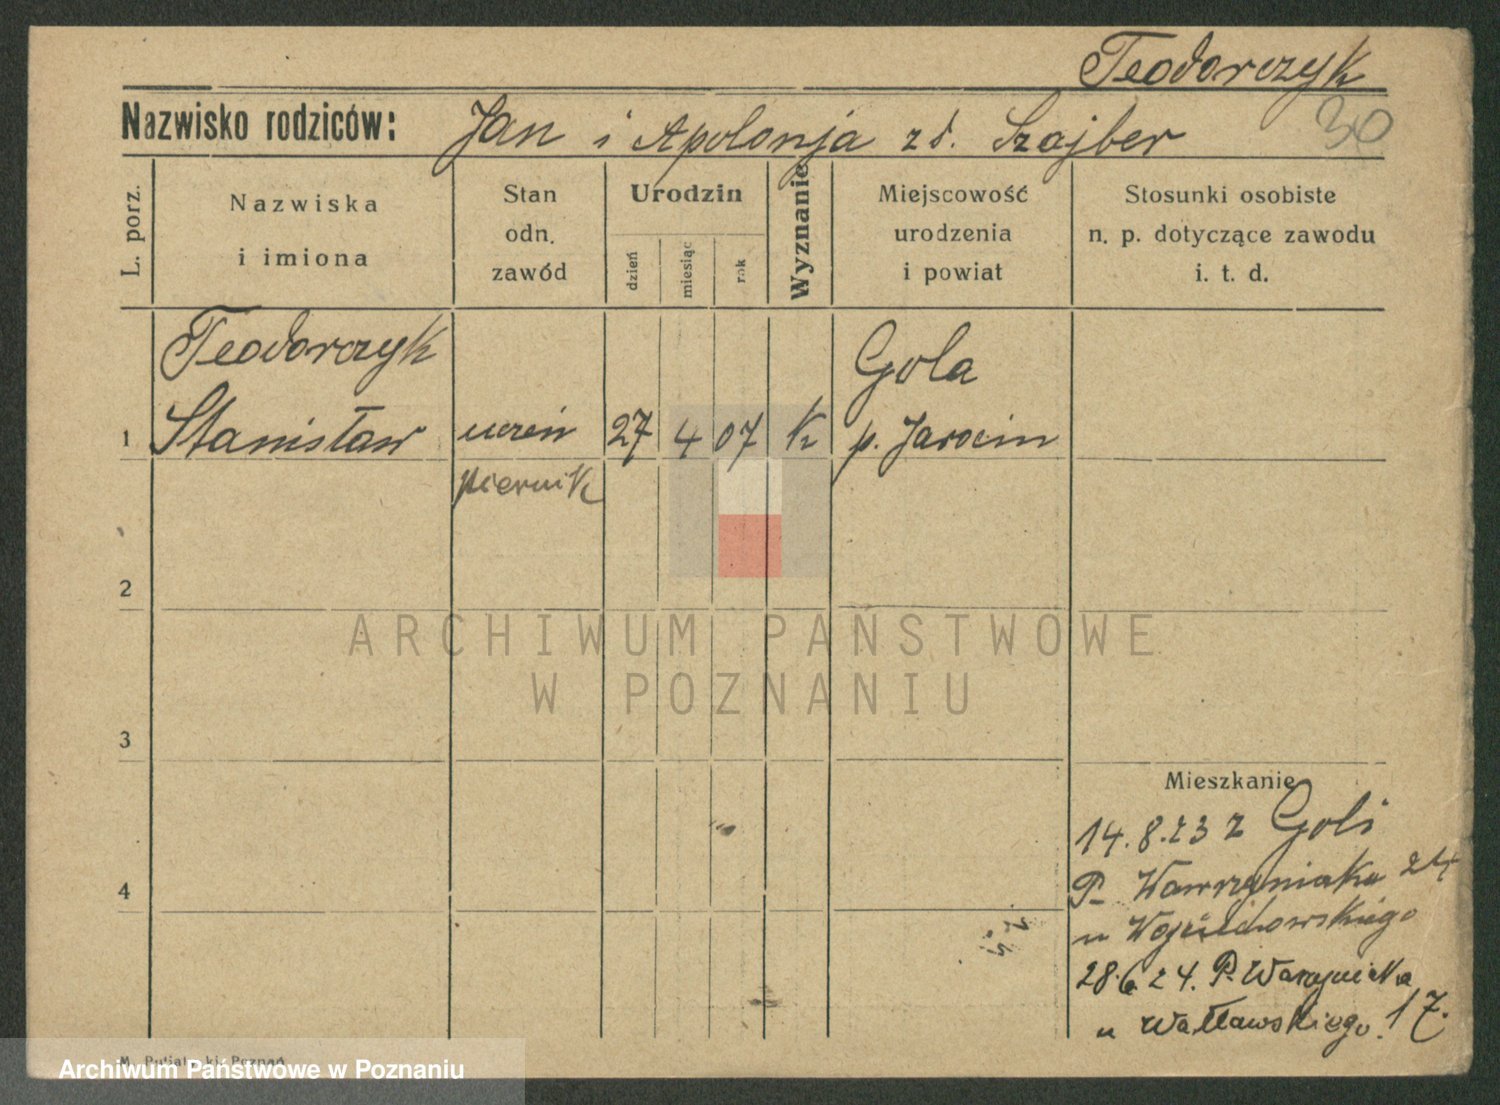 Teodorczyk
Nazwisko rodziców: Jan i Apolonja zd. Szajber
30
L. porz.
Nazwiska
i imiona
Stan
odn.
zawód
Urodzin
dzień
miesiąc
rok
Wyznanie
Miejscowość
urodzenia
i powiat
Stosunki osobiste
n. p. dotyczące zawodu
i. t. d.
Teodorczyk
Gola
1 Stanisław uczeń 27 4 07 K p. Jarocin
piernik
2
3
4
Mieszkanie
14.8.23 z Goli
P. Wawrzyniaka 24
u Wojciechowskiego
28.6.24. P. Wawrzyniaka
u Watławskiego. 17.
M. Poznań
ARCHIWUM PAŃSTWOWE
W POZNANIU
Archiwum Państwowe w Poznaniu